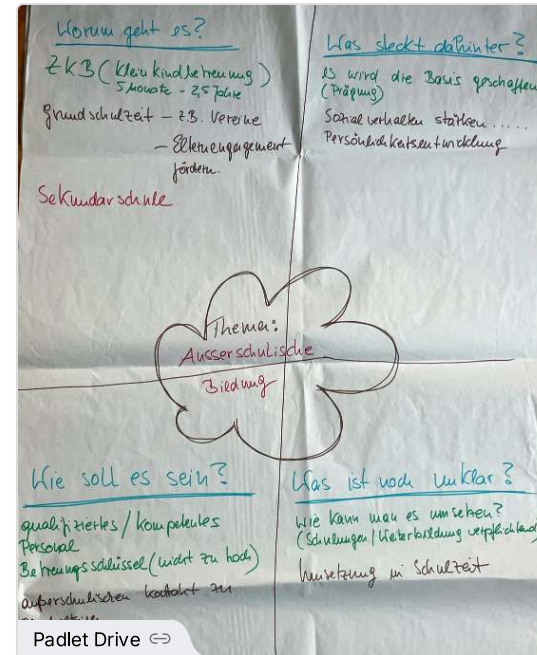 Worum geht es?
ZKB (Kleinkindbetreuung)
5 Monate - 2,5 Jahre
Grundschulzeit - z.B. Vereine
- Elternengagement
fördern.
Sekundarschule
Was steckt dahinter?
es wird die Basis geschaffen
(Prägung)
Sozialverhalten stärken .....
Persönlichkeitsentwicklung
Thema:
Ausserschulische
Bildung
Wie soll es sein?
qualifiziertes / kompetentes
Personal
Betreuungsschlüssel (nicht zu hoch)
außerschulischen Kontakt zu
Was ist noch unklar?
Wie kann man es umsetzen?
(Schulungen / Weiterbildung verpflichtend)
Umsetzung in Schulzeit
Padlet Drive